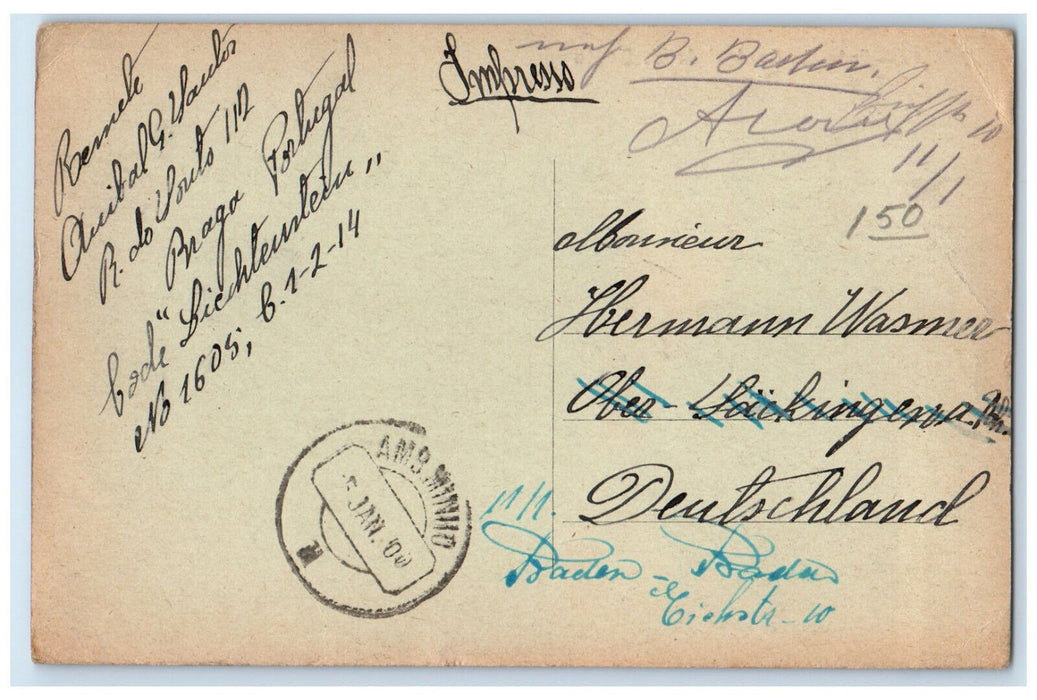 Remete
Anibal G. Santos
R. do Souto 112
Braga Portugal
Code "Liechtenstein"
No 1605, C.1-2-14
Impresso
nach B. Baden.
10
11/1
1 50
Monsieur
Hermann Wasmer
Ober-Säckingen a. Rh.
Deutschland
11/1.
Baden-Baden
Eichstr. 10
AMB. MINHO
5 JAN. 09